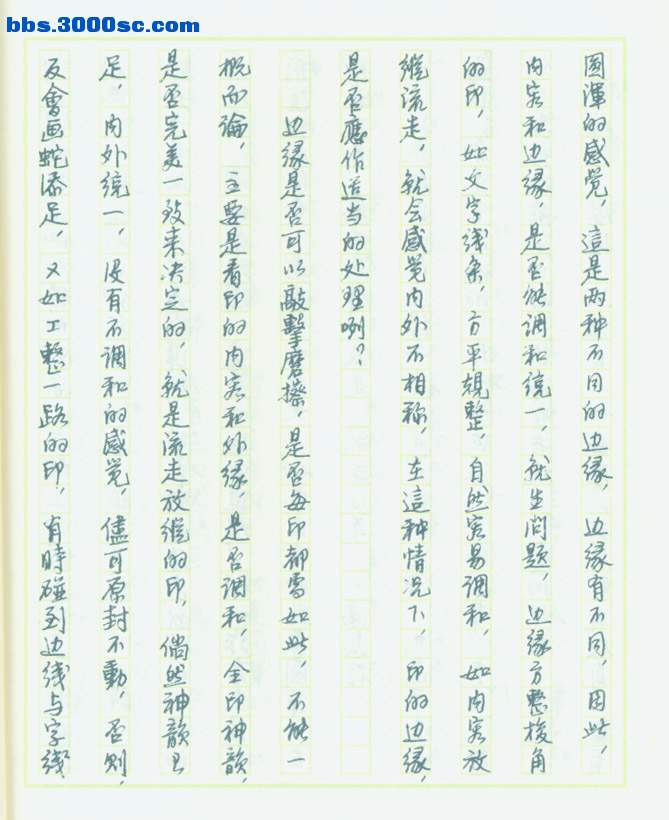 bbs.3000sc.com
圆渾的感觉，這是两种不同的边缘，边缘有不同，因此，
内容和边缘，是否能调和统一，就生问题，边缘方整棱角
的印，如文字线条，方平規整，自然容易调和，如内容放
縱流走，就会感觉内外不相称，在這种情况下，印的边缘，
是否應作适当的处理咧？
边缘是否可以敲擊磨擦，是否每印都需如此，不能一
概而論，主要是看印的内容和外缘，是否调和，全印神韵，
是否完美一致来决定的，就是流走放縱的印，倘然神韵已
足，内外统一，没有不调和的感觉，儘可原封不動，否則，
反會画蛇添足，又如工整一路的印，有時碰到边线与字线